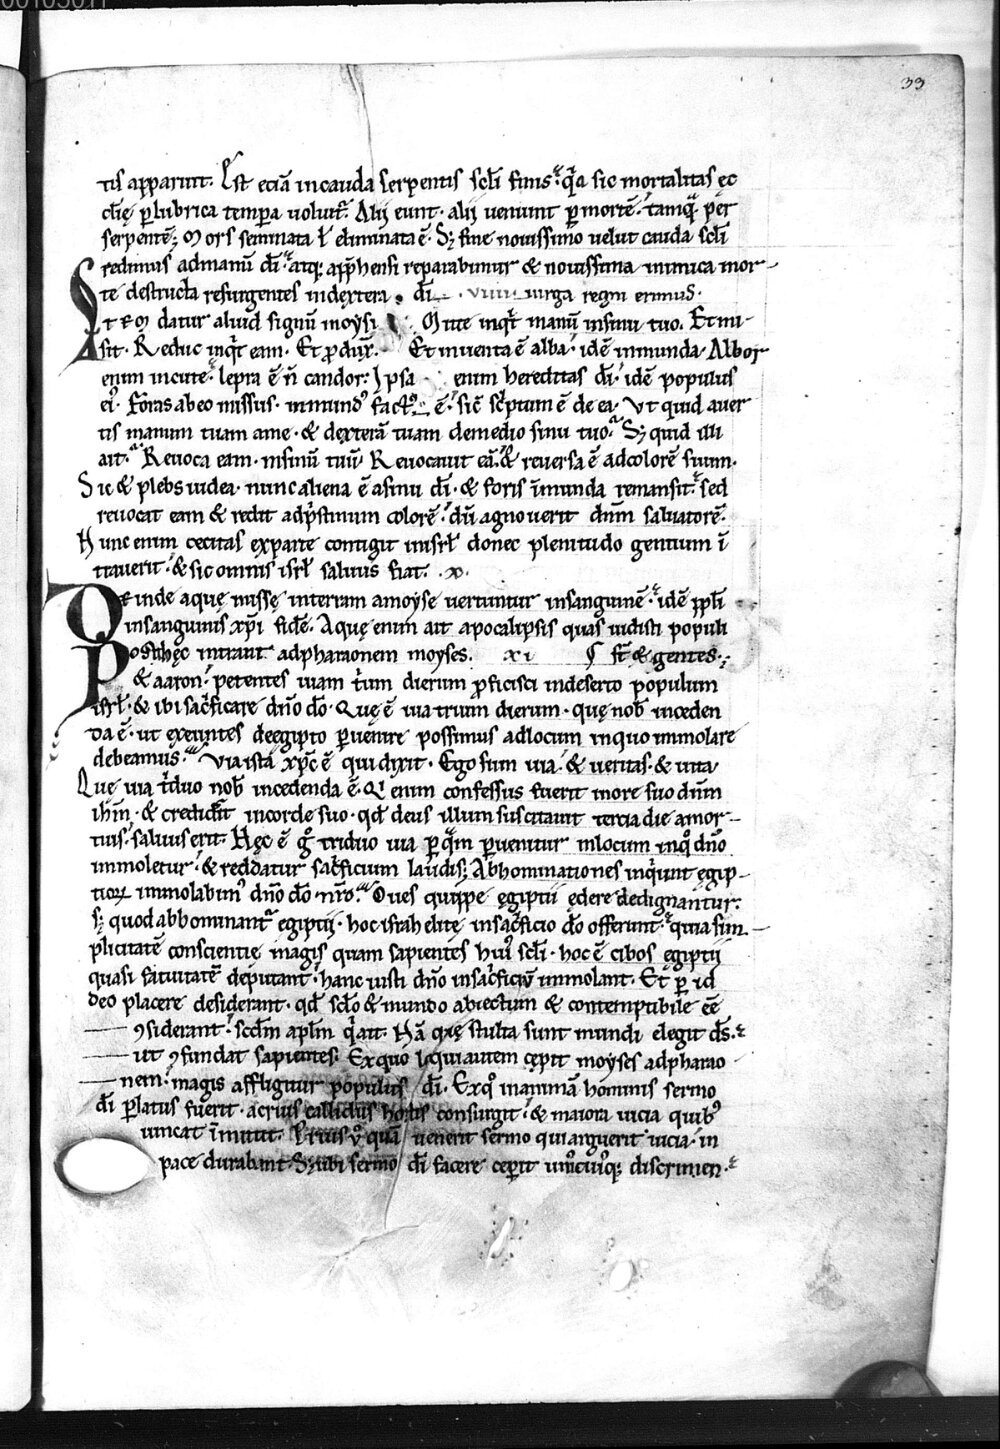 33
tis apparuit. Est eciā in cauda serpentis scli finis. qͥa sic mortalitas ęc
clię ꝑ lubrica tempa uoluit᷑. Alij eunt. alij ueniunt ꝑ mortē. tamqᷓ ꝑ er
serpentē; Mors seminata ł eliminata ē. Sꝫ fine nouissimo uelut cauda scli
redimus ad manū dī. atqꝫ appͥhensi reparabimur & nouissima inimica mor-
te destructa resurgentes in dextera dī. uirga regni erimus.
Item datur aliud signū moysi. Mitte inqͥt manū in sinu tuo. Et mi-
sit. Reduc inqͥt eam. Et ꝓdux̄. Et inuenta ē alba. idē inmunda. Albor
enim in cute. lepra ē n̄ candor. Ipsa enim hereditas dī. idē populus
ei᷒. foras ab eo missus. inmund᷒ fact᷒ ē. sic sc̄ptum ē de ea. Vt quid auer
tis manum tuam a me. & dexterā tuam de medio sinu tuo. Sꝫ quid illi
ait. Reuoca eam. in sinū tuū. Reuocauit eā. & reuersa ē ad colorē suum.
Sic & plebs iudea. nunc aliena ē a sinu dī. & foris īmunda remansit. sed
reuocat eam & redit ad pͥstinum colorē. dū agnouerit dnm̄ saluatorē.
Hunc enim cecitas ex parte contigit in isrł donec plenitudo gentium ī
trauerit. & sic omnis isrł saluus fiat. x.
Deinde aquę missę in terram a moyse uertuntur in sanguinē. idē ppłi
in sanguinis xp̄i fidē. Aquę enim ait apocalipsis quas uidisti populi
Post hęc intrant ad pharaonem moyses. xi s̄t & gentes.
& aaron. petentes uiam tͥum dierum ꝓficisci in deserto populum
isrł. & ibi sacͥficare dn̄o dō. Quę ē uia trium dierum. quę nob᷒ inceden
da ē. ut exeuntes de egipto ꝑuenire possimus ad locum in quo immolare
debeamus. Via ista xp̄c ē qui dixit. Ego sum uia. & ueritas. & uita
Quę uia tͥduo nob᷒ incedenda ē. Qͥ enim confessus fuerit in ore suo dnm̄
ihm̄. & credidit in corde suo. qd̄ deus illum suscitauit tercia die a mor-
tuis. saluus erit. Hęc ē gͦ triduo uia ꝑ qᷓm ꝑuenitur in locum in qͦ dn̄o
immoletur. & reddatur sacͥficium laudis; Abhominationes inqͥunt ęgip-
tioꝝ immolabim᷒ dn̄o dō nr̄o. Oues quippe ęgiptii ędere dedignantur.
sꝫ quod abbominant᷑ egiptij. hoc israhelitę in sacͥficio dō offerunt. quia sim-
plicitatē conscientię magis quam sapientes hui᷒ scli. hoc ē cibos ęgiptij
quasi fatuitatē deputant. hanc iusti dn̄o in sacͥficiū immolant. Et ꝑ id
deo placere desiderant. qd̄ sclo & mundo abiectum & contemptibile ēē
ꝯsiderant. scd̄m aplm̄ qͥ ait. Hā quę stulta sunt mundi elegit ds̄.
ut ꝯfundat sapientes. Ex quo loqui autem cępit moyses ad pharao
nem. magis affligitur populus dī. Ex qͦ in animā hominis sermo
dī ꝑlatus fuerit. acrius callidus hostis consurgit. & maiora uicia quib᷒
uincat īmittit. Prius uͦ quā uenerit sermo qui arguerit uicia. in
pace durabant. Sꝫ ubi sermo dī facere ceperit unicuiqꝫ discrimen.